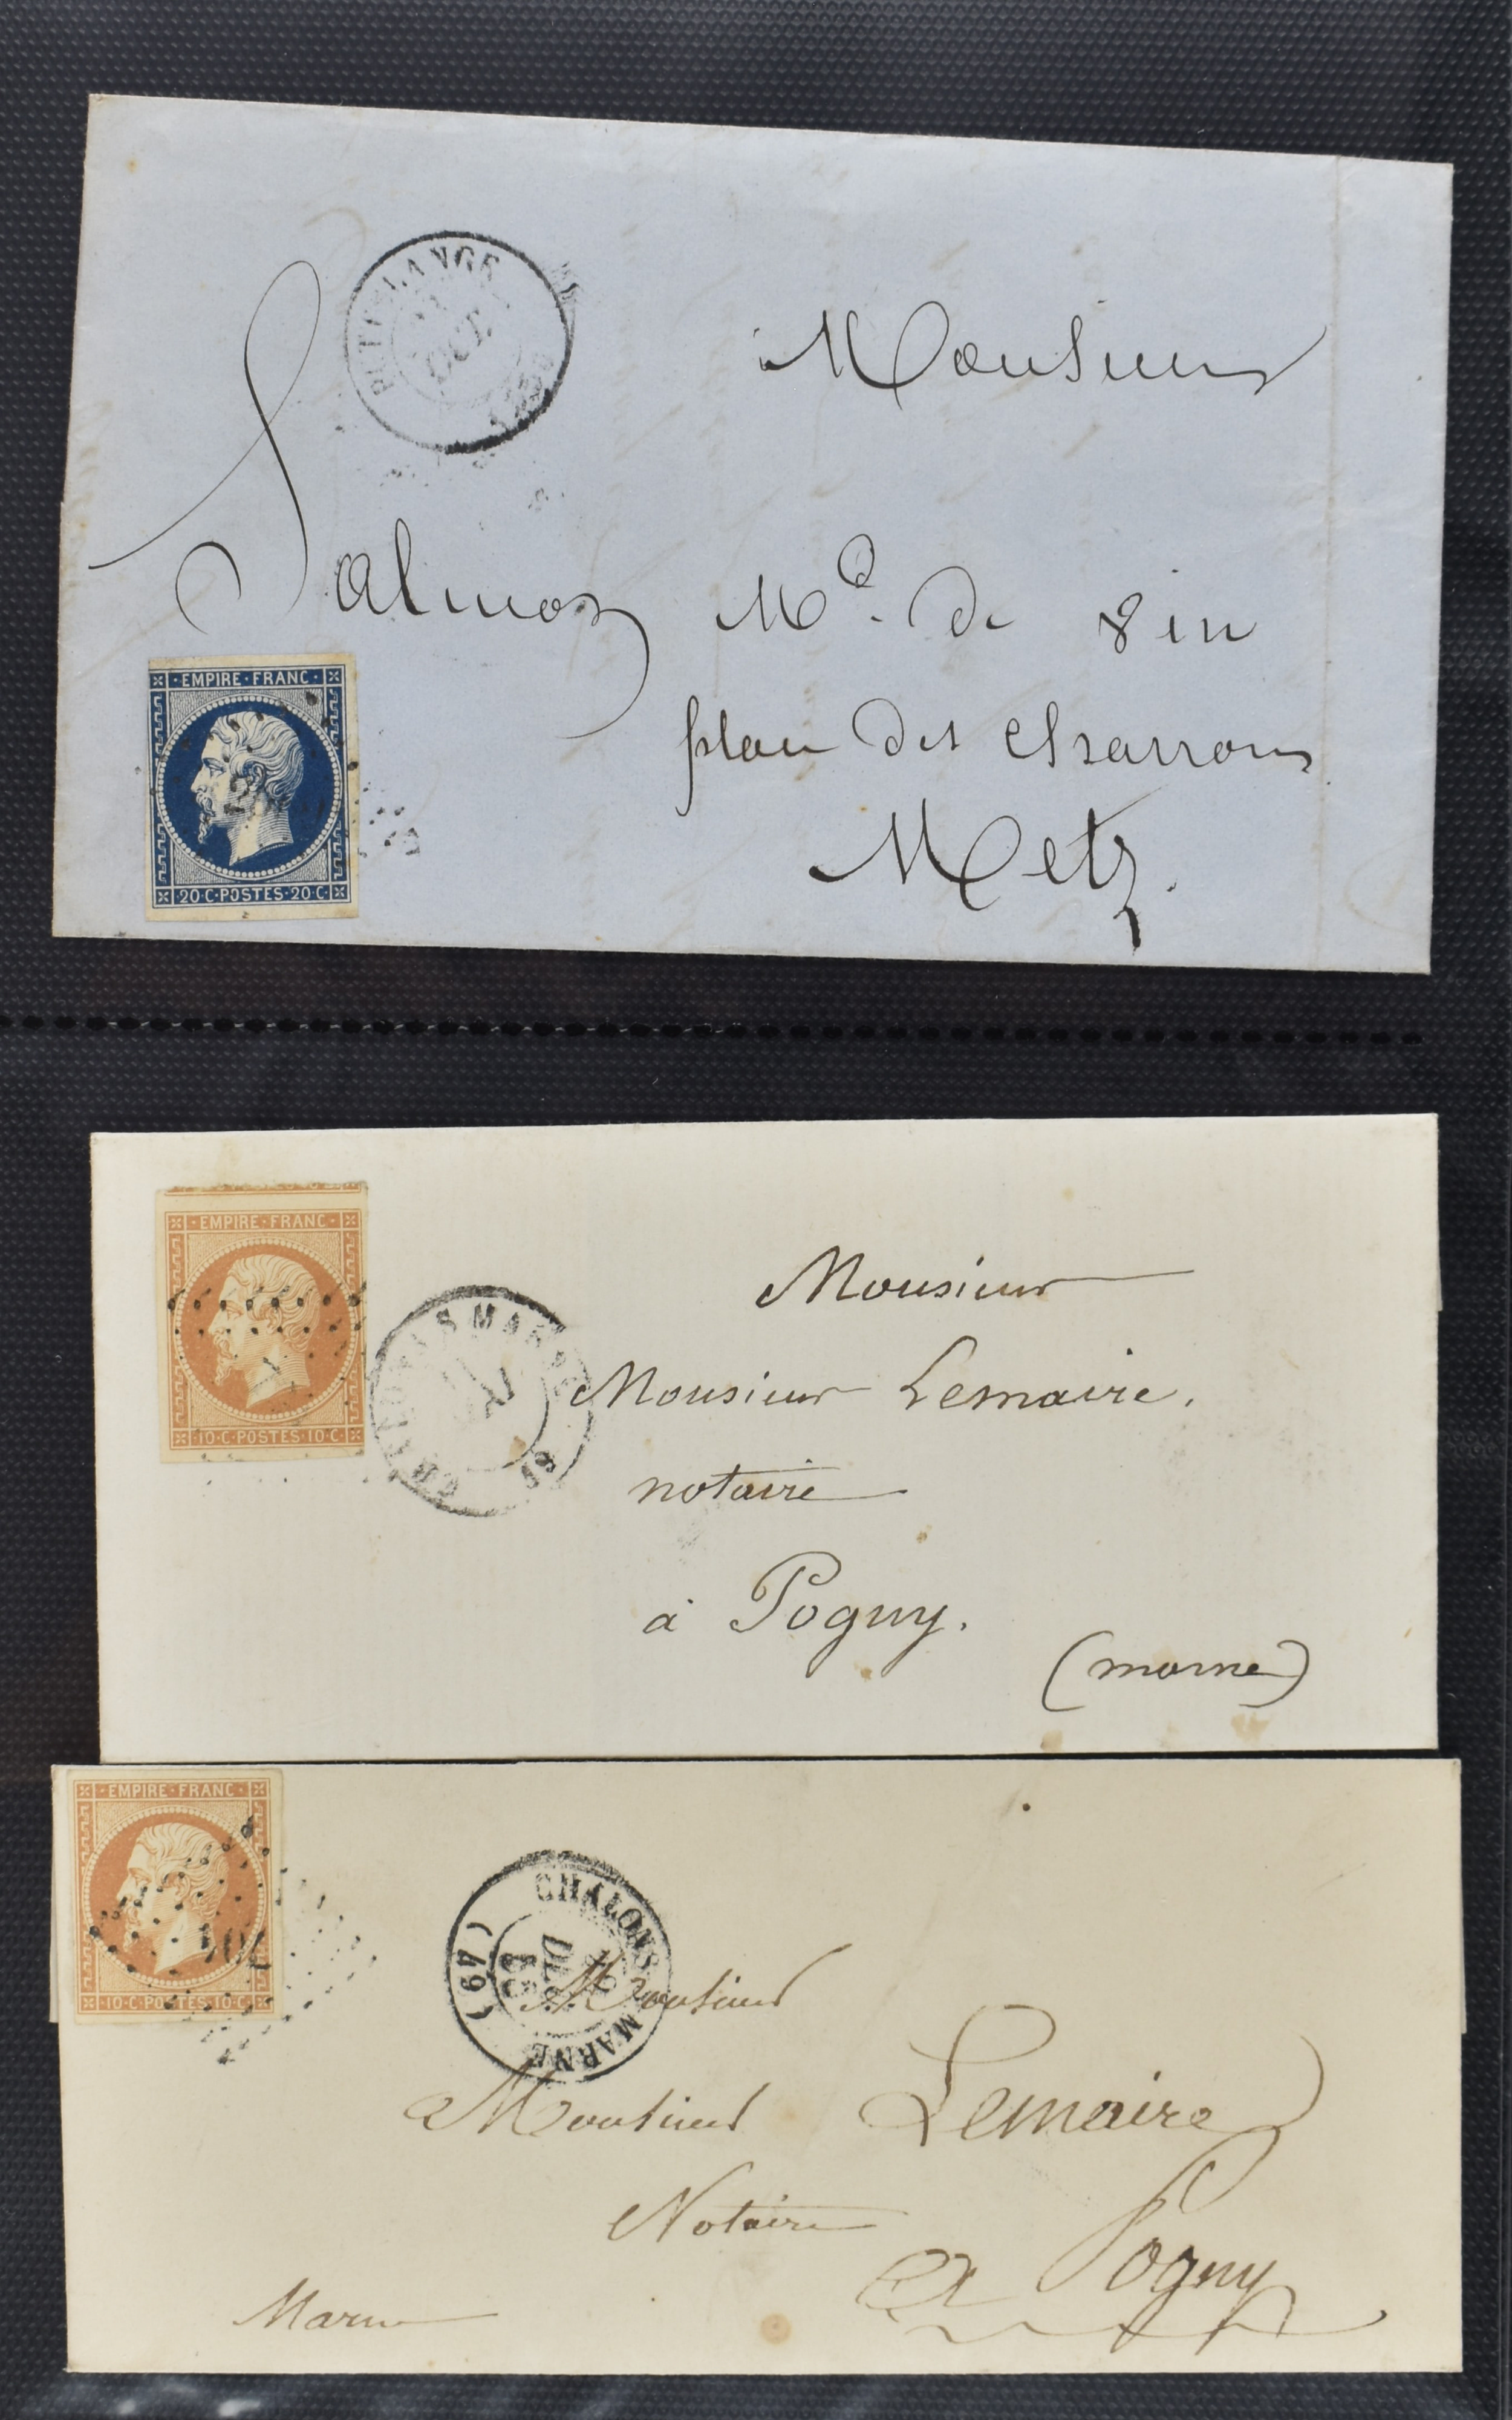 PUTTELANGE
OCT.
Monsieur
Salmon Md. de Vin
plan des Charrons
Metz.
EMPIRE · FRANC ·
20 · C · POSTES · 20 · C ·
EMPIRE · FRANC ·
10 · C · POSTES · 10 · C ·
CHALONS MARNE
Monsieur
Monsieur Lemaire.
notaire
à Pogny.
(marne)
EMPIRE · FRANC ·
10 · C · POSTES · 10 · C ·
CHALONS MARNE
DEC.
(49)
Monsieur
Monsieur Lemaire
Notaire
a Pogny
Marne